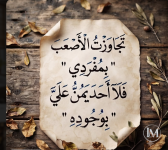 تَجَاوَزْتُ الْأَصْعَب
" بِمُفْرَدِي "
فَلَا أَحَد يَمُنُّ عَلَيَّ
" بِوُجُودِهِ "
M